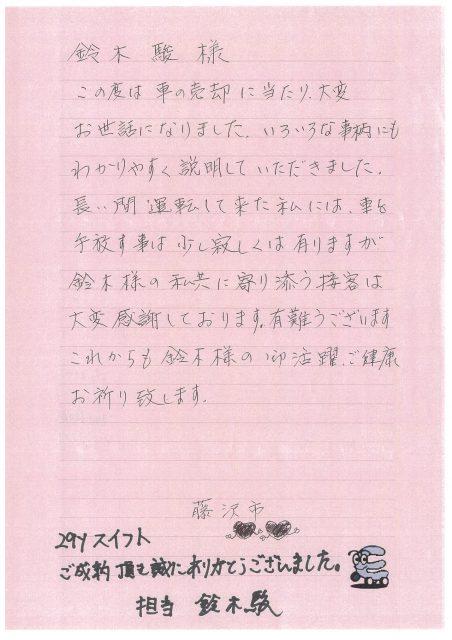 鈴木 駿 様
この度は 車の売却に当たり、大変
お世話になりました。いろいろな事柄にも
わかりやすく説明していただきました。
長い間 運転して来た私には、車を
手放す事は少し寂しくは有りますが
鈴木様の私共に寄り添う接客は
大変感謝しております。有難うございます
これからも鈴木様の御活躍、ご健康
お祈り致します。
藤沢市
29Y スイフト
ご成約頂き誠にありがとうございました。
担当 鈴木駿